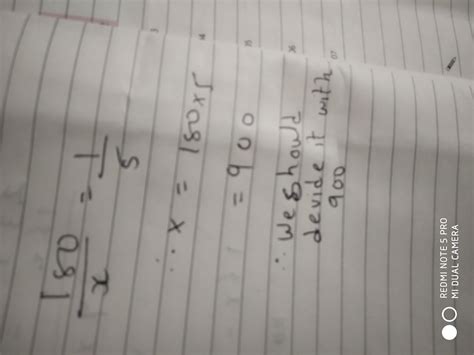 180/x = 1/5
∴ x = 180x5
= 900
∴ We should
devide it with
900
REDMI NOTE 5 PRO
MI DUAL CAMERA